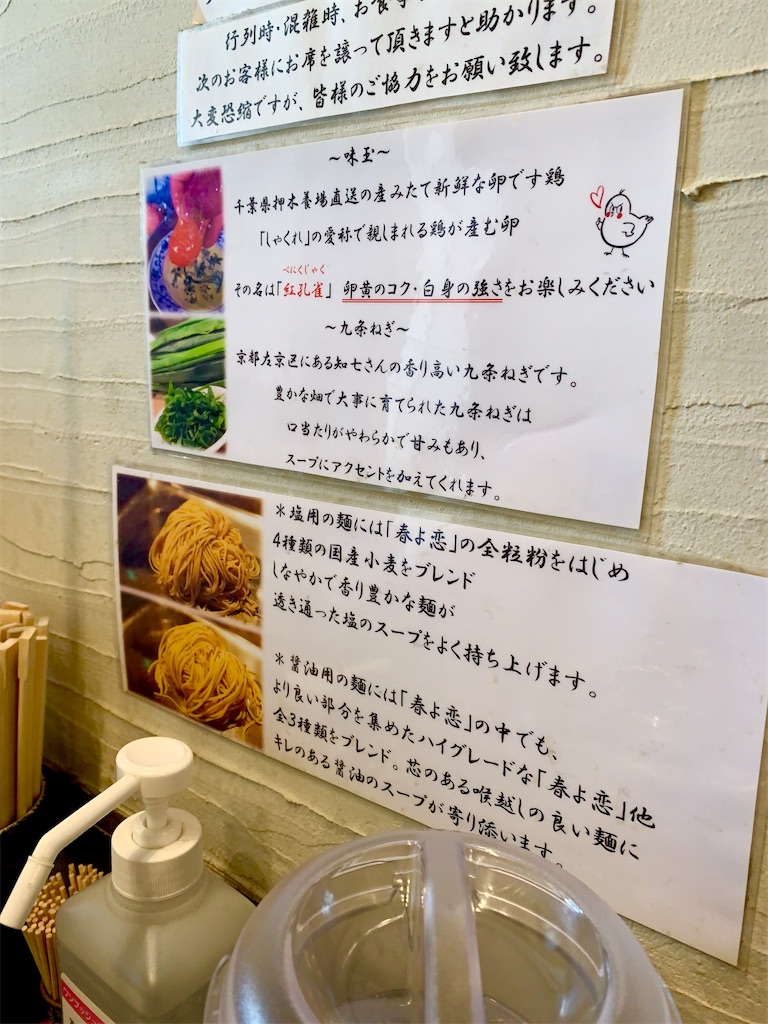 行列時・混雑時、お食事
次のお客様にお席を譲って頂きますと助かります。
大変恐縮ですが、皆様のご協力をお願い致します。
～味玉～
千葉県押木養場直送の産みたて新鮮な卵です鶏
「しゃくれ」の愛称で親しまれる鶏が産む卵
べにくじゃく
その名は「紅孔雀」 卵黄のコク・白身の強さをお楽しみください
～九条ねぎ～
京都左京区にある知七さんの香り高い九条ねぎです。
豊かな畑で大事に育てられた九条ねぎは
口当たりがやわらかで甘みもあり、
スープにアクセントを加えてくれます。
＊塩用の麺には「春よ恋」の全粒粉をはじめ
4種類の国産小麦をブレンド
しなやかで香り豊かな麺が
透き通った塩のスープをよく持ち上げます。
＊醤油用の麺には「春よ恋」の中でも、
より良い部分を集めたハイグレードな「春よ恋」他
全3種類をブレンド。芯のある喉越しの良い麺に
キレのある醤油のスープが寄り添います。